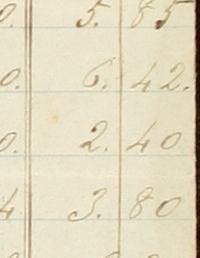 0. 5. 85
0. 6. 42.
0. 2. 40
4 3. 80